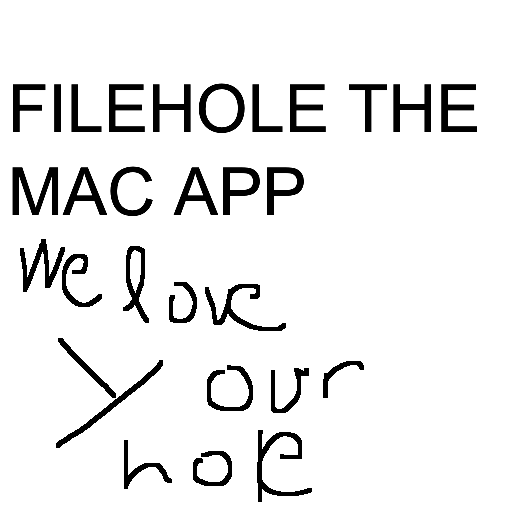 FILEHOLE THE
MAC APP
We love
your
hole